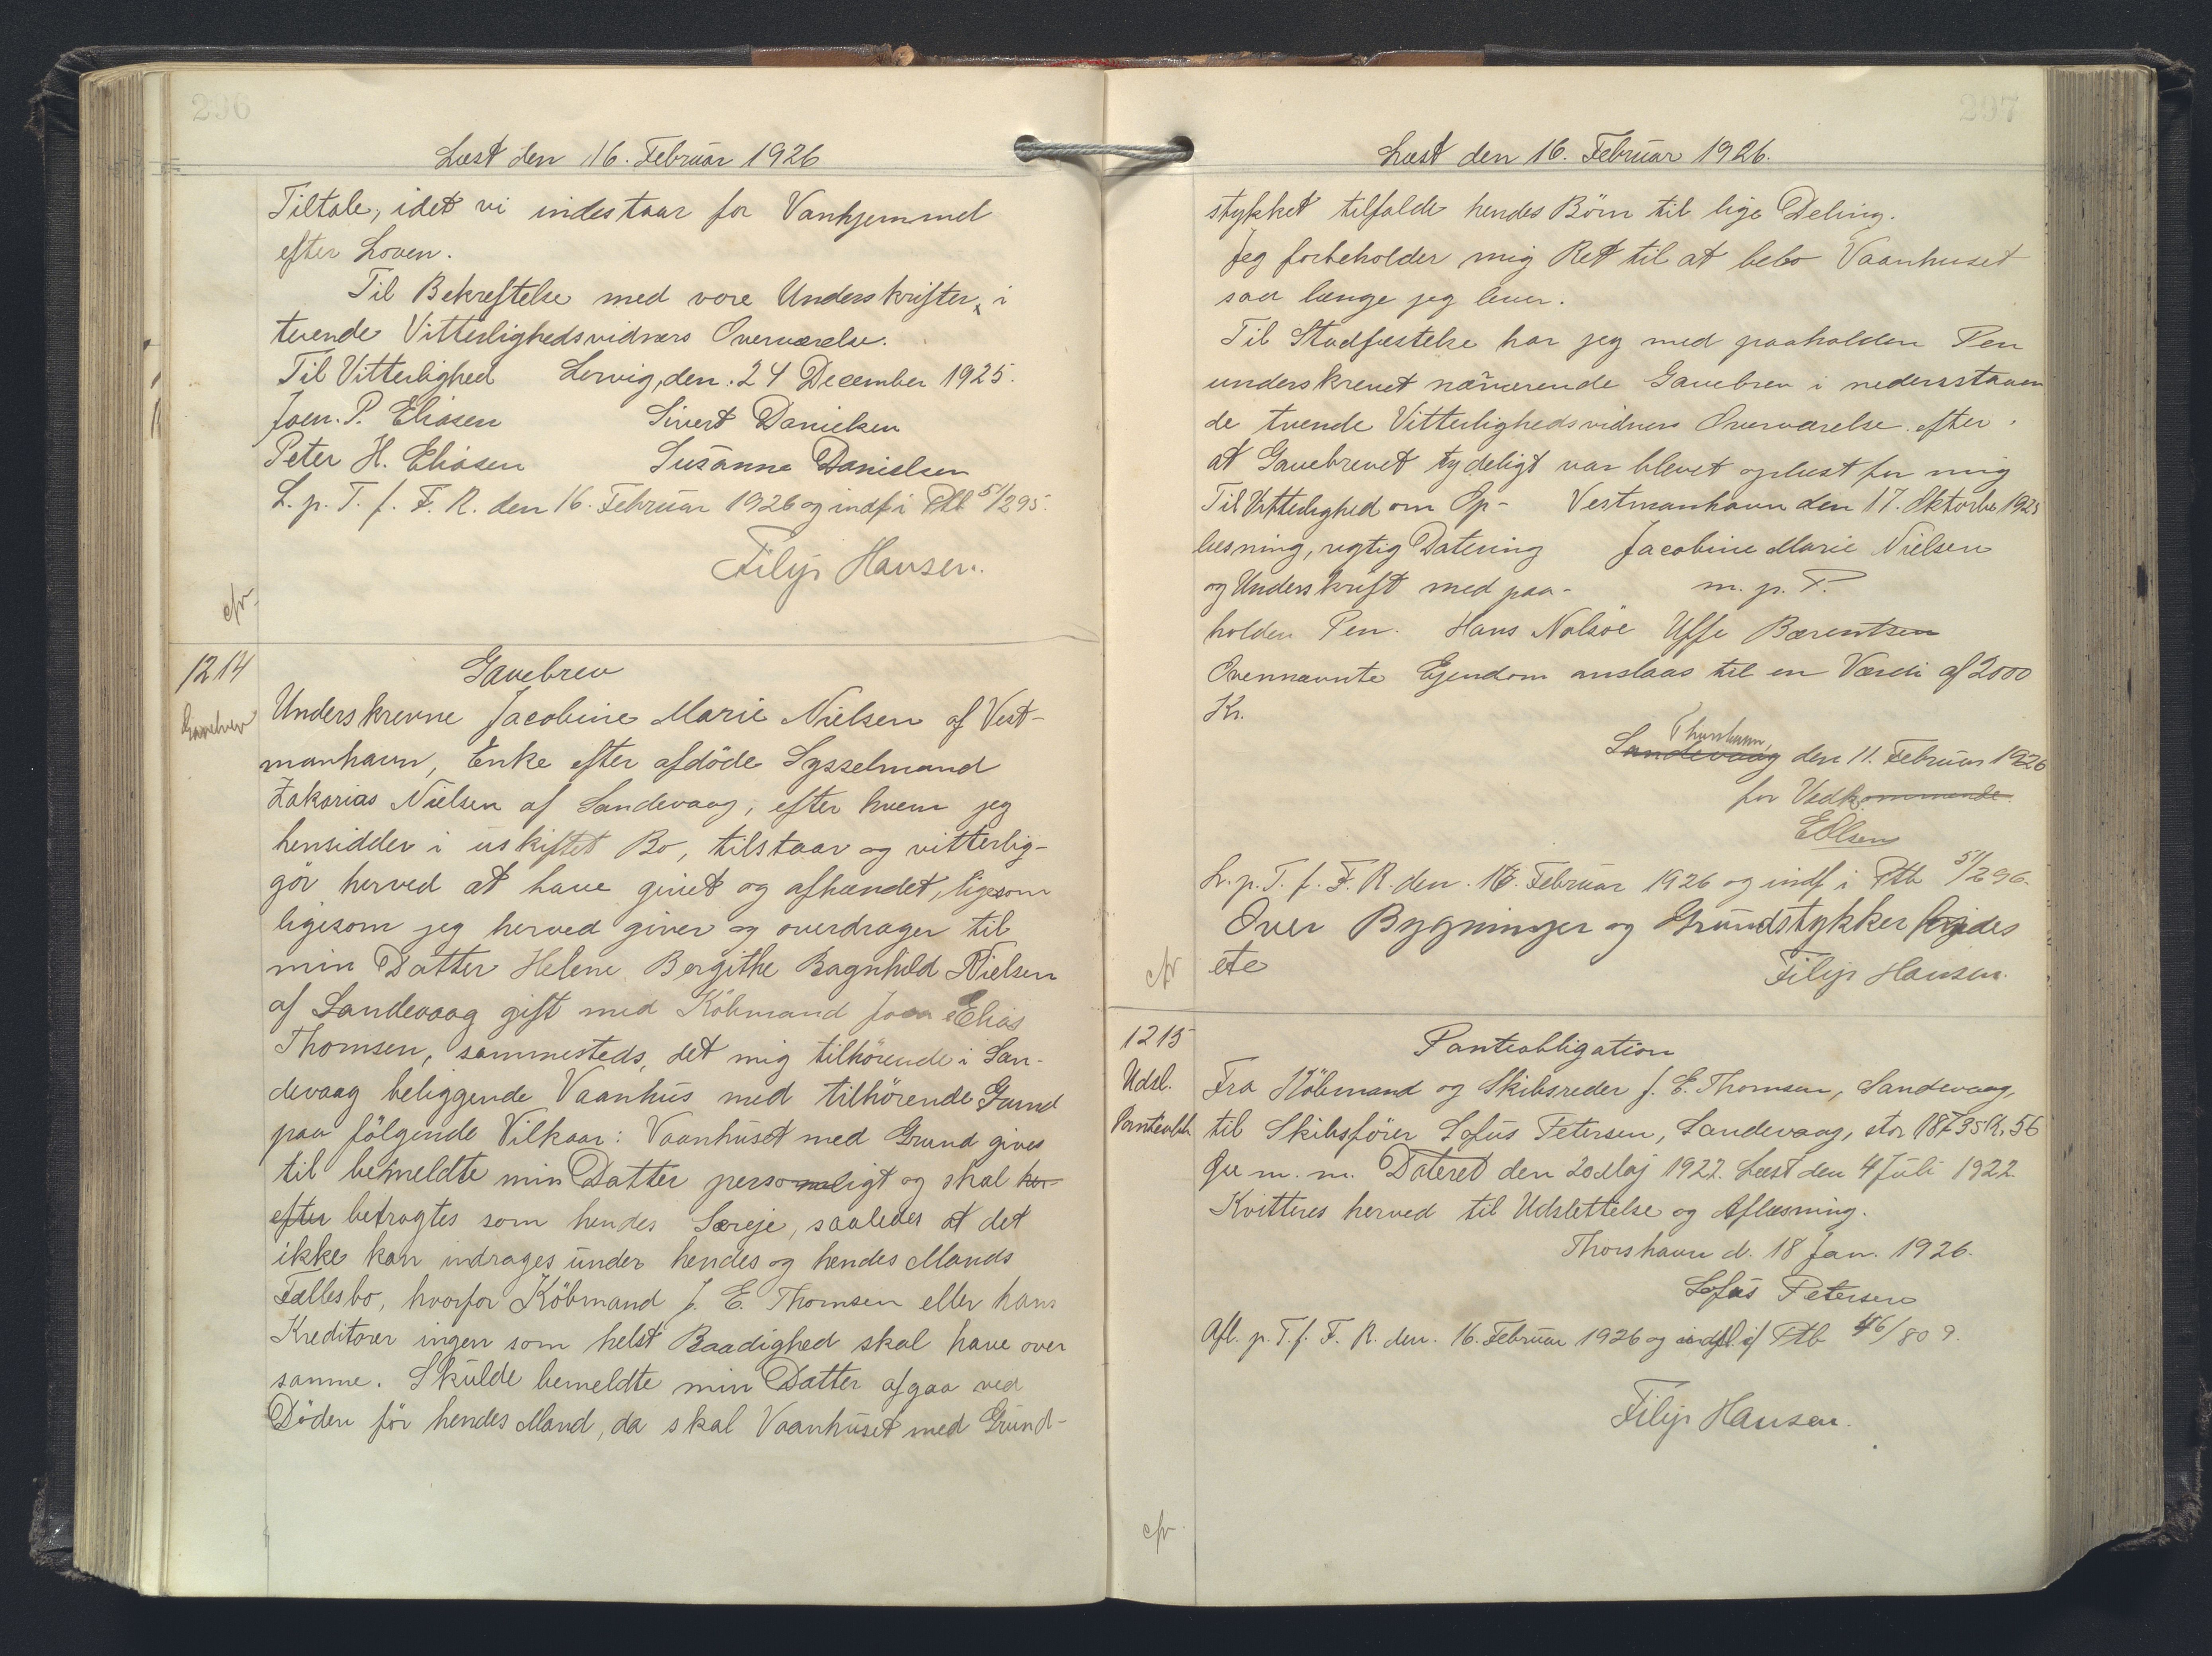 296
Læst den 16. Februar 1926
Tiltale, idet vi indestaar for Vanhjemmel
efter Loven.
Til Bekræftelse med vore Underskrifter i
tvende Vitterlighedsvidners Overværelse.
Til Vitterlighed Lervig, den 24 December 1925.
Joen. P. Eliasen Sivert Danielsen
Peter H. Eliasen Susanne Danielsen
L. p. T. f. F. R. den 16. Februar 1926 og indf i Ptb 51/295.
Filip Hansen.
cfr
1214
Gavebrev
Gavebrev
Underskrevne Jacobine Marie Nielsen af Vest-
manhavn, Enke efter afdöde Sysselmand
Zakarias Nielsen af Sandevaag, efter hvem jeg
hensidder i uskiftet Bo, tilstaar og vitterlig-
gör herved at have givet og afhændet, ligesom
ligesom jeg herved giver og overdrager til
min Datter Helene Bergithe Ragnhild Nielsen
af Sandevaag gift med Köbmand Joen Elias
Thomsen, sammesteds, det mig tilhörende i San-
devaag beliggende Vaanhus med tilhörende Grund
paa fölgende Vilkaar: Vaanhuset med Grund gives
til bemeldte min Datter personligt og skal her-
efter betragtes som hendes Særeje, saaledes at det
ikke kan indrages under hendes og hendes Mands
Fællesbo, hvorfor Köbmand J. E. Thomsen eller hans
Kreditorer ingen som helst Raadighed skal have over
samme. Skulde bemeldte min Datter afgaa ved
Döden för hendes Mand, da skal Vaanhuset med Grund-
297
Læst den 16. Februar 1926.
stykket tilfalde hendes Börn til lige Deling.
Jeg forbeholder mig Ret til at bebo Vaanhuset
saa længe jeg lever.
Til Stadfæstelse har jeg med paaholden Pen
underskrevet nærværende Gavebrev i nedersstaaen
de tvende Vitterlighedsvidners Overværelse efter
at Gavebrevet tydeligt var blevet oplæst for mig
Til Vitterlighed om Op- Vestmanhavn den 17. Oktober 1925
læsning, rigtig Datering Jacobine Marie Nielsen
og Underskrift med paa- m. p. P.
holden Pen. Hans Nolsöe Uffe Bærentsen
Ovennævnte Ejendom anslaas til en Værdi af 2000
Kr.
Thorshavn,
Sandevaag den 11. Februar 1926
for Vedkommende
EOlsen
L. p. T. f. F. R. den 16. Februar 1926 og indf i Ptb 51/296.
Over Bygninger og Grundstykker findes
ete
Filip Hansen.
cfr
1215
Udsl.
Panteobl.
Panteobligation
Fra Köbmand og Skibsreder J. E. Thomsen, Sandevaag,
til Skibsförer Sofus Petersen, Sandevaag, stor 1873 Kr. 56
Öre m. m. Dateret den 20 Maj 1922. Læst den 4 Juli 1922
Kvitteres herved til Udslettelse og Aflæsning.
Thorshavn d. 18 Jan. 1926.
Sofus Petersen
Afl. p. T. f. F. R. den. 16. Februar 1926 og udsl. af Ptb 46/809.
Filip Hansen.
cfr